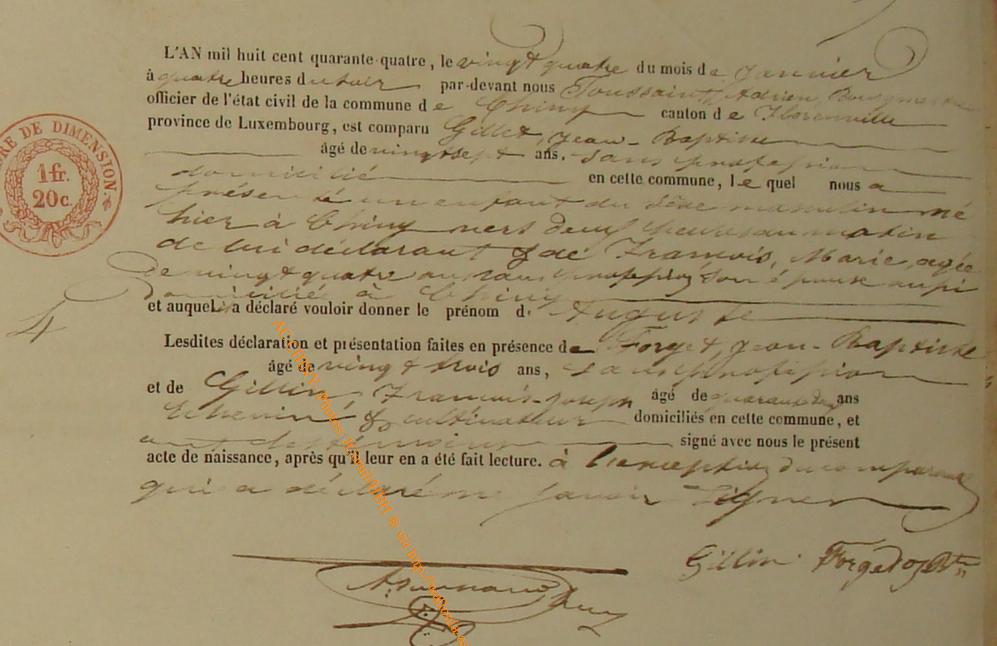 L'AN mil huit cent quarante-quatre, le vingt quatre du mois de Janvier
à quatre heures du soir par-devant nous Toussaint, Adrien, Bourgmestre
officier de l'état civil de la commune de Chiny canton de Florenville
province de Luxembourg, est comparu Gillet, Jean-Baptiste
âgé de vingt sept ans, sans profession
domicilié en cette commune, lequel nous a
présenté un enfant du sexe masculin né
hier à Chiny vers deux heures du matin
de lui déclarant & de François, Marie, agée
de vingt quatre an sans profession son épouse aussi
domicilié à Chiny
et auquel il a déclaré vouloir donner le prénom d' Auguste
Lesdites déclaration et présentation faites en présence de Forget, Jean-Baptiste
âgé de vingt trois ans, sans profession
et de Gillin, François-Joseph âgé de quarante ans
Echevin & cultivateur domiciliés en cette commune, et
ont signé avec nous le présent
acte de naissance, après qu'il leur en a été fait lecture. à l'exception du comparant
qui a déclaré ne savoir signer
Gillin
4
TIMBRE DE DIMENSION.
1 fr.
20c.